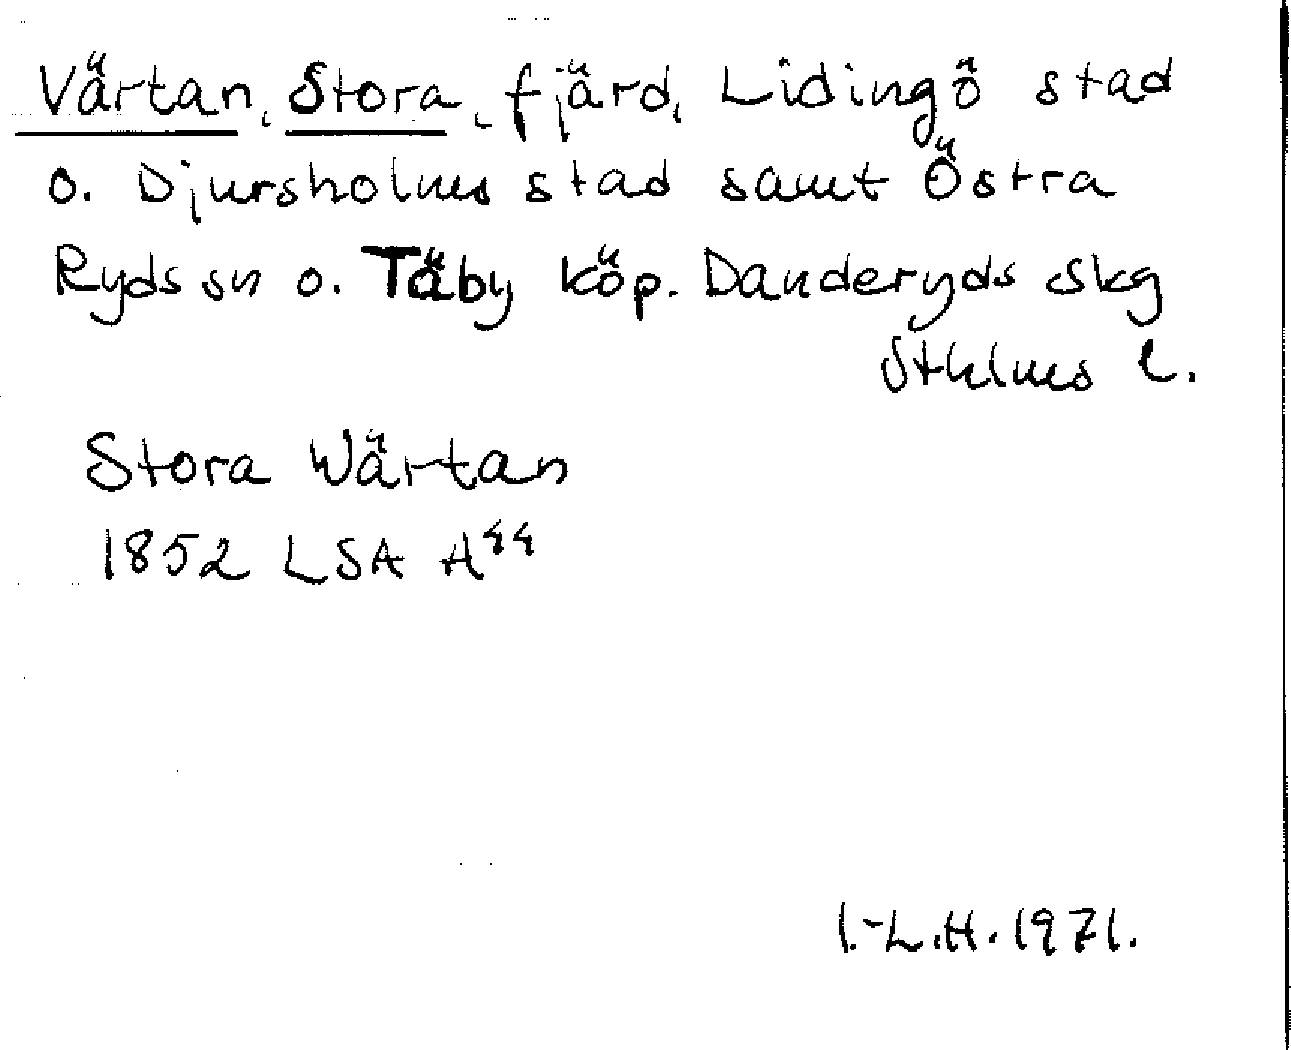 Värtan, Stora, fjärd, Lidingö stad
o. Djursholms stad samt Östra
Ryds sn o. Täby köp. Danderyds Skg
Sthlms l.
Stora Wärtan
1852 LSA A⁴⁴
I.-L.H. 1971.